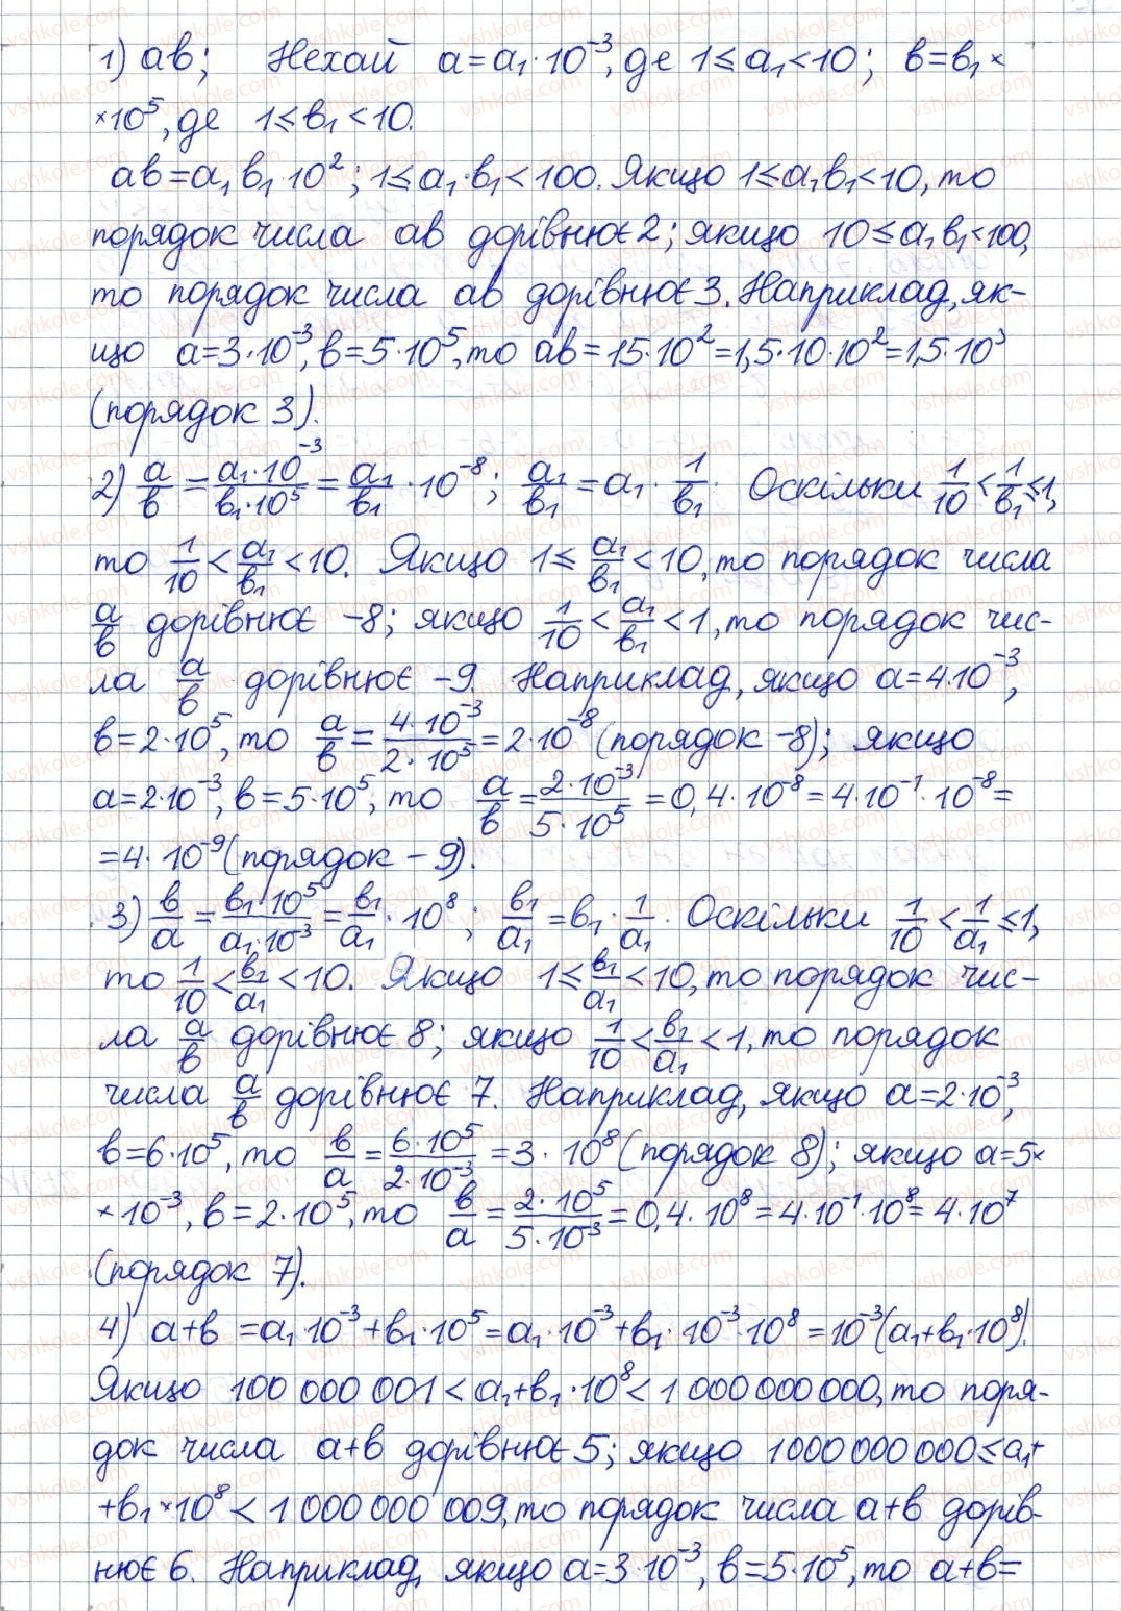 1) ab; Нехай a=a₁·10⁻³, де 1≤a₁<10; b=b₁×
×10⁵, де 1≤b₁<10.
ab=a₁b₁·10²; 1≤a₁·b₁<100. Якщо 1≤a₁b₁<10, то
порядок числа ab дорівнює 2; якщо 10≤a₁b₁<100,
то порядок числа ab дорівнює 3. Наприклад, як-
що a=3·10⁻³, b=5·10⁵, то ab=15·10²=1,5·10·10²=1,5·10³
(порядок 3).
2) a/b = (a₁·10⁻³)/(b₁·10⁵) = a₁/b₁ · 10⁻⁸; a₁/b₁ = a₁ · 1/b₁. Оскільки 1/10 < 1/b₁ ≤ 1,
то 1/10 < a₁/b₁ < 10. Якщо 1 ≤ a₁/b₁ < 10, то порядок числа
a/b дорівнює -8; якщо 1/10 < a₁/b₁ < 1, то порядок чис-
ла a/b дорівнює -9. Наприклад, якщо a=4·10⁻³,
b=2·10⁵, то a/b = (4·10⁻³)/(2·10⁵) = 2·10⁻⁸ (порядок -8); якщо
a=2·10⁻³, b=5·10⁵, то a/b = (2·10⁻³)/(5·10⁵) = 0,4·10⁻⁸=4·10⁻¹·10⁻⁸=
=4·10⁻⁹ (порядок -9).
3) b/a = (b₁·10⁵)/(a₁·10⁻³) = b₁/a₁ · 10⁸; b₁/a₁ = b₁ · 1/a₁. Оскільки 1/10 < 1/a₁ ≤ 1,
то 1/10 < b₁/a₁ < 10. Якщо 1 ≤ b₁/a₁ < 10, то порядок чис-
ла a/b дорівнює 8; якщо 1/10 < b₁/a₁ < 1, то порядок
числа a/b дорівнює 7. Наприклад, якщо a=2·10⁻³,
b=6·10⁵, то b/a = (6·10⁵)/(2·10⁻³) = 3·10⁸ (порядок 8); якщо a=5×
×10⁻³, b=2·10⁵, то b/a = (2·10⁵)/(5·10⁻³) = 0,4·10⁸=4·10⁻¹·10⁸=4·10⁷
(порядок 7).
4) a+b=a₁·10⁻³+b₁·10⁵=a₁·10⁻³+b₁·10⁻³·10⁸=10⁻³(a₁+b₁·10⁸).
Якщо 100 000 001<a₁+b₁·10⁸<1 000 000 000, то поря-
док числа a+b дорівнює 5; якщо 1 000 000 000≤a₁+
+b₁×10⁸<1 000 000 009, то порядок числа a+b дорів-
нює 6. Наприклад, якщо a=3·10⁻³, b=5·10⁵, то a+b=